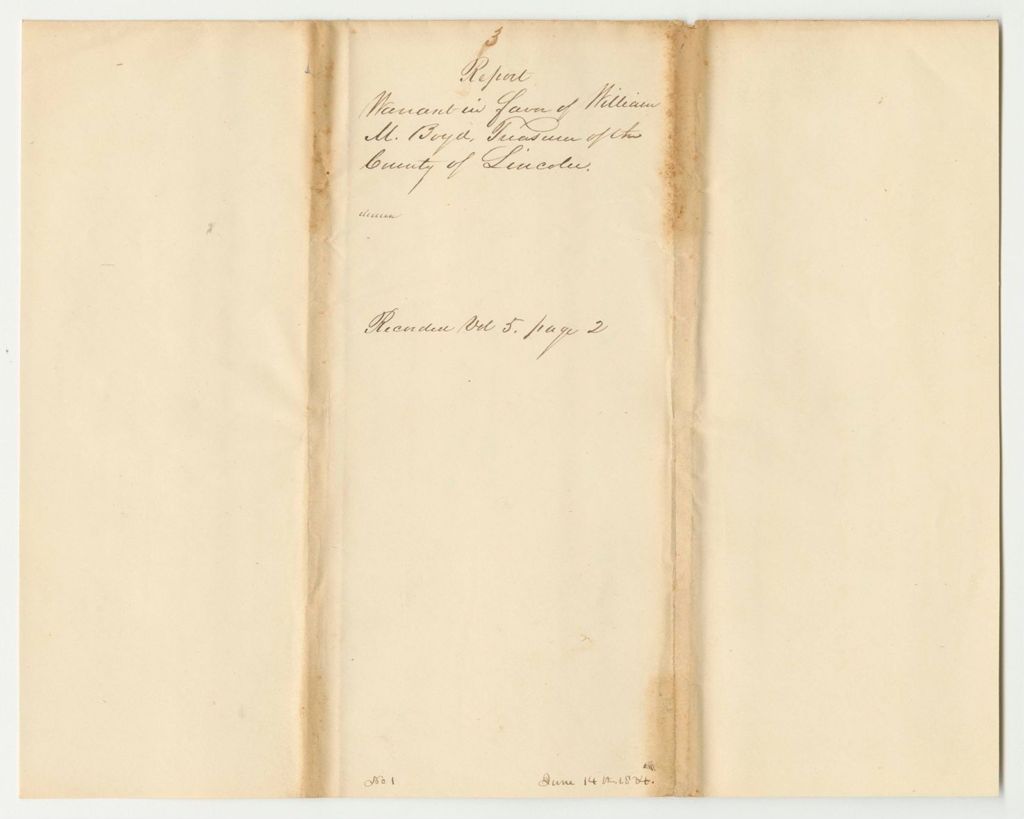 3
Report
Warrant in favor of William
M. Boyd, Treasurer of the
County of Lincoln.
Recorded Vol 5. page 2
No 1
June 14th 18